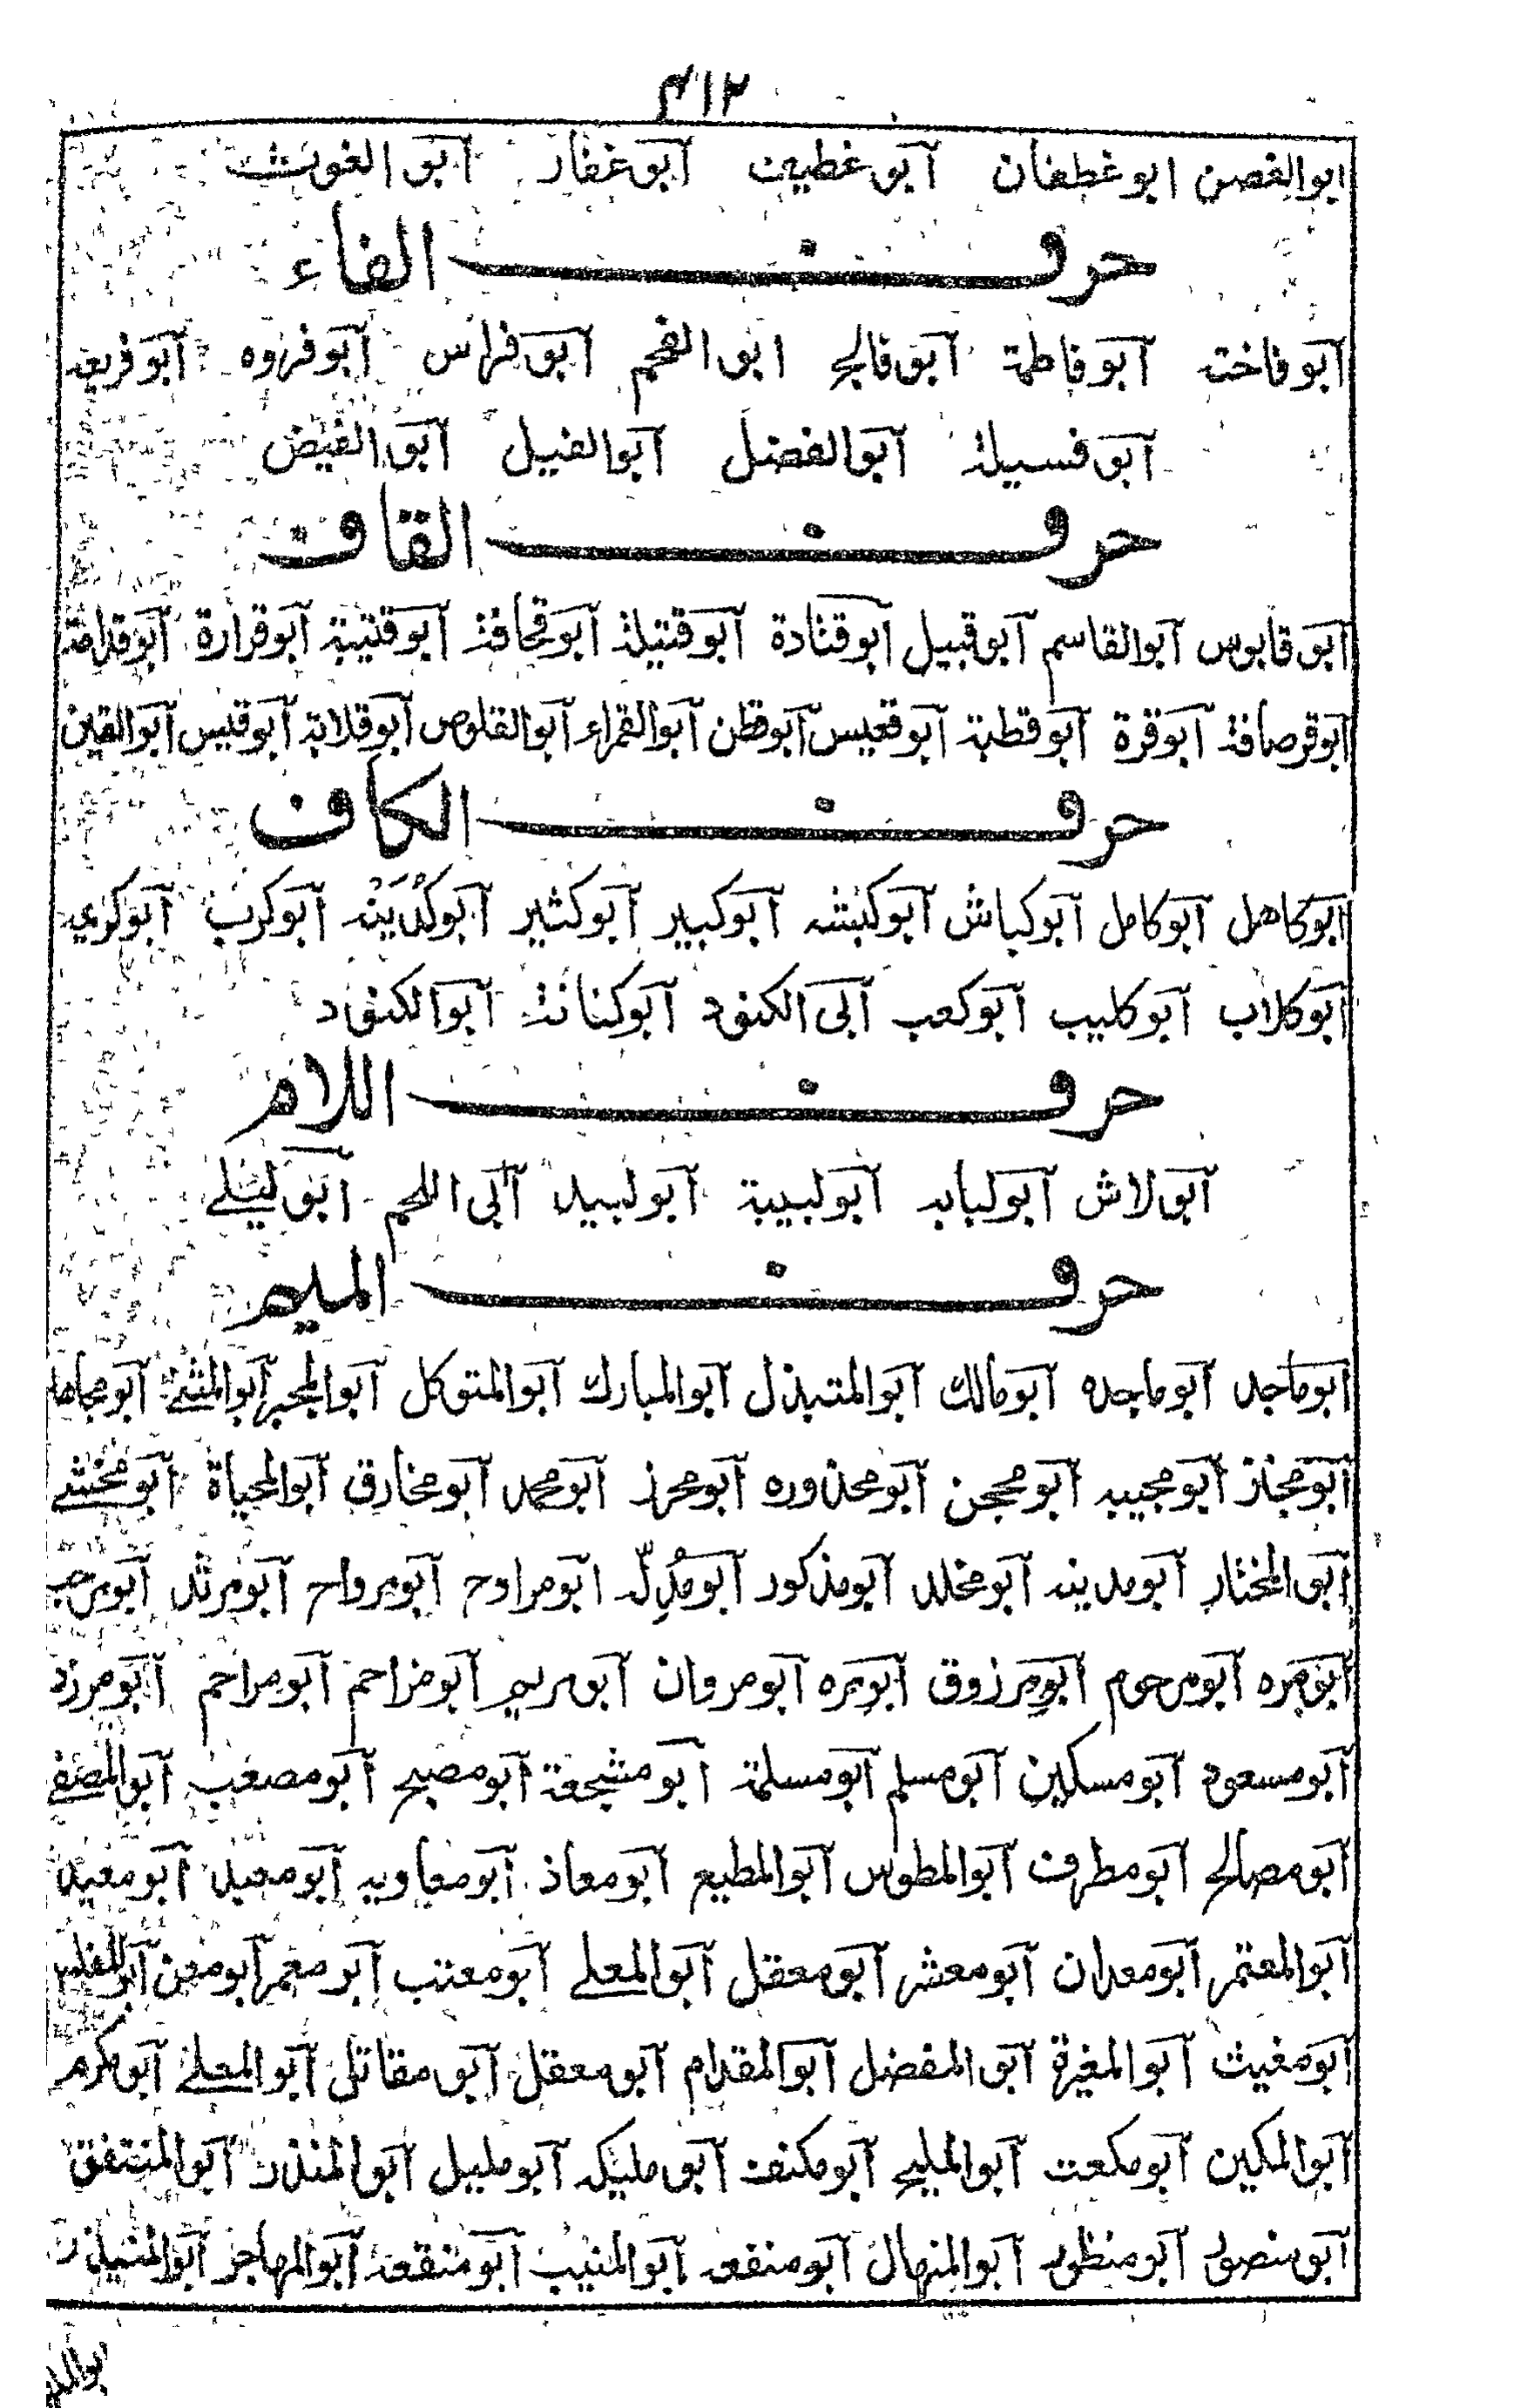 ٤١٢
ابوالغصن ابوغطفان ابوغطیف ابوغفار ابوالغوث
حرف الفاء
ابوفاختہ ابوفاطمۃ ابوفالج ابوالفحم ابوفراس ابوفروہ ابوفریعہ
ابوفسیلۃ ابوالفضل ابوالفیل ابوالفیض
حرف القاف
ابوقابوس ابوالقاسم ابوقبیل ابوقتادة ابوقتیلۃ ابوقحافۃ ابوقتیبۃ ابوقرارة ابوقدامۃ
ابوقرصافۃ ابوقرة ابوقطبۃ ابوقعیس ابوقطن ابوالقمراء ابوالقلوص ابوقلابۃ ابوقیس ابوالقین
حرف الکاف
ابوکاهل ابوکامل ابوکباش ابوکبشہ ابوکبیر ابوکثیر ابوکُدَیْنَہ ابوکرب ابوکریمہ
ابوکلاب ابوکلیب ابوکعب ابی الکنود ابوکنانۃ ابوالکنود
حرف اللام
ابولاش ابولبابہ ابولبیبۃ ابولبید ابی اللحم ابولیلے
حرف المیم
ابوماجد ابوماجدہ ابومالک ابوالمتبذل ابوالمبارك ابوالمتوکل ابوالمجبر ابوالمثنے ابومجاهد
ابومجلز ابومجیبہ ابومحجن ابومحذورہ ابومحرز ابومحمد ابومخارق ابوالمحیاة ابومخشے
ابوالمختار ابومدینہ ابومخلد ابومذکور ابومُدِلّہ ابومراوح ابومرواح ابومرثد ابومرحب
ابومرہ ابومرحوم ابومرزوق ابومرہ ابومروان ابومریم ابومزاحم ابومراحم ابومزرد
ابومسعود ابومسکین ابومسلم ابومسلمۃ ابومشجعۃ ابومصبح ابومصعب ابوالمصفے
ابومصالح ابومطرف ابوالمطوس ابوالمطیع ابومعاذ ابومعاویہ ابومعبد ابومعید
ابوالمعتمر ابومعدان ابومعشر ابومعقل ابوالمعلے ابومعتب ابومعمر ابومعن ابوالمغلس
ابومغیث ابوالمغیرة ابوالمفضل ابوالمقدام ابومعقل ابومقاتل ابوالمعلے ابومکرم
ابوالمکین ابومکعت ابوالملیح ابومکنف ابوملیکہ ابوملیل ابوالمنذر ابوالمنتفق
ابومنصور ابومنظور ابوالمنهال ابومنفعہ ابوالمنیب ابومنقعۃ ابوالمهاجر